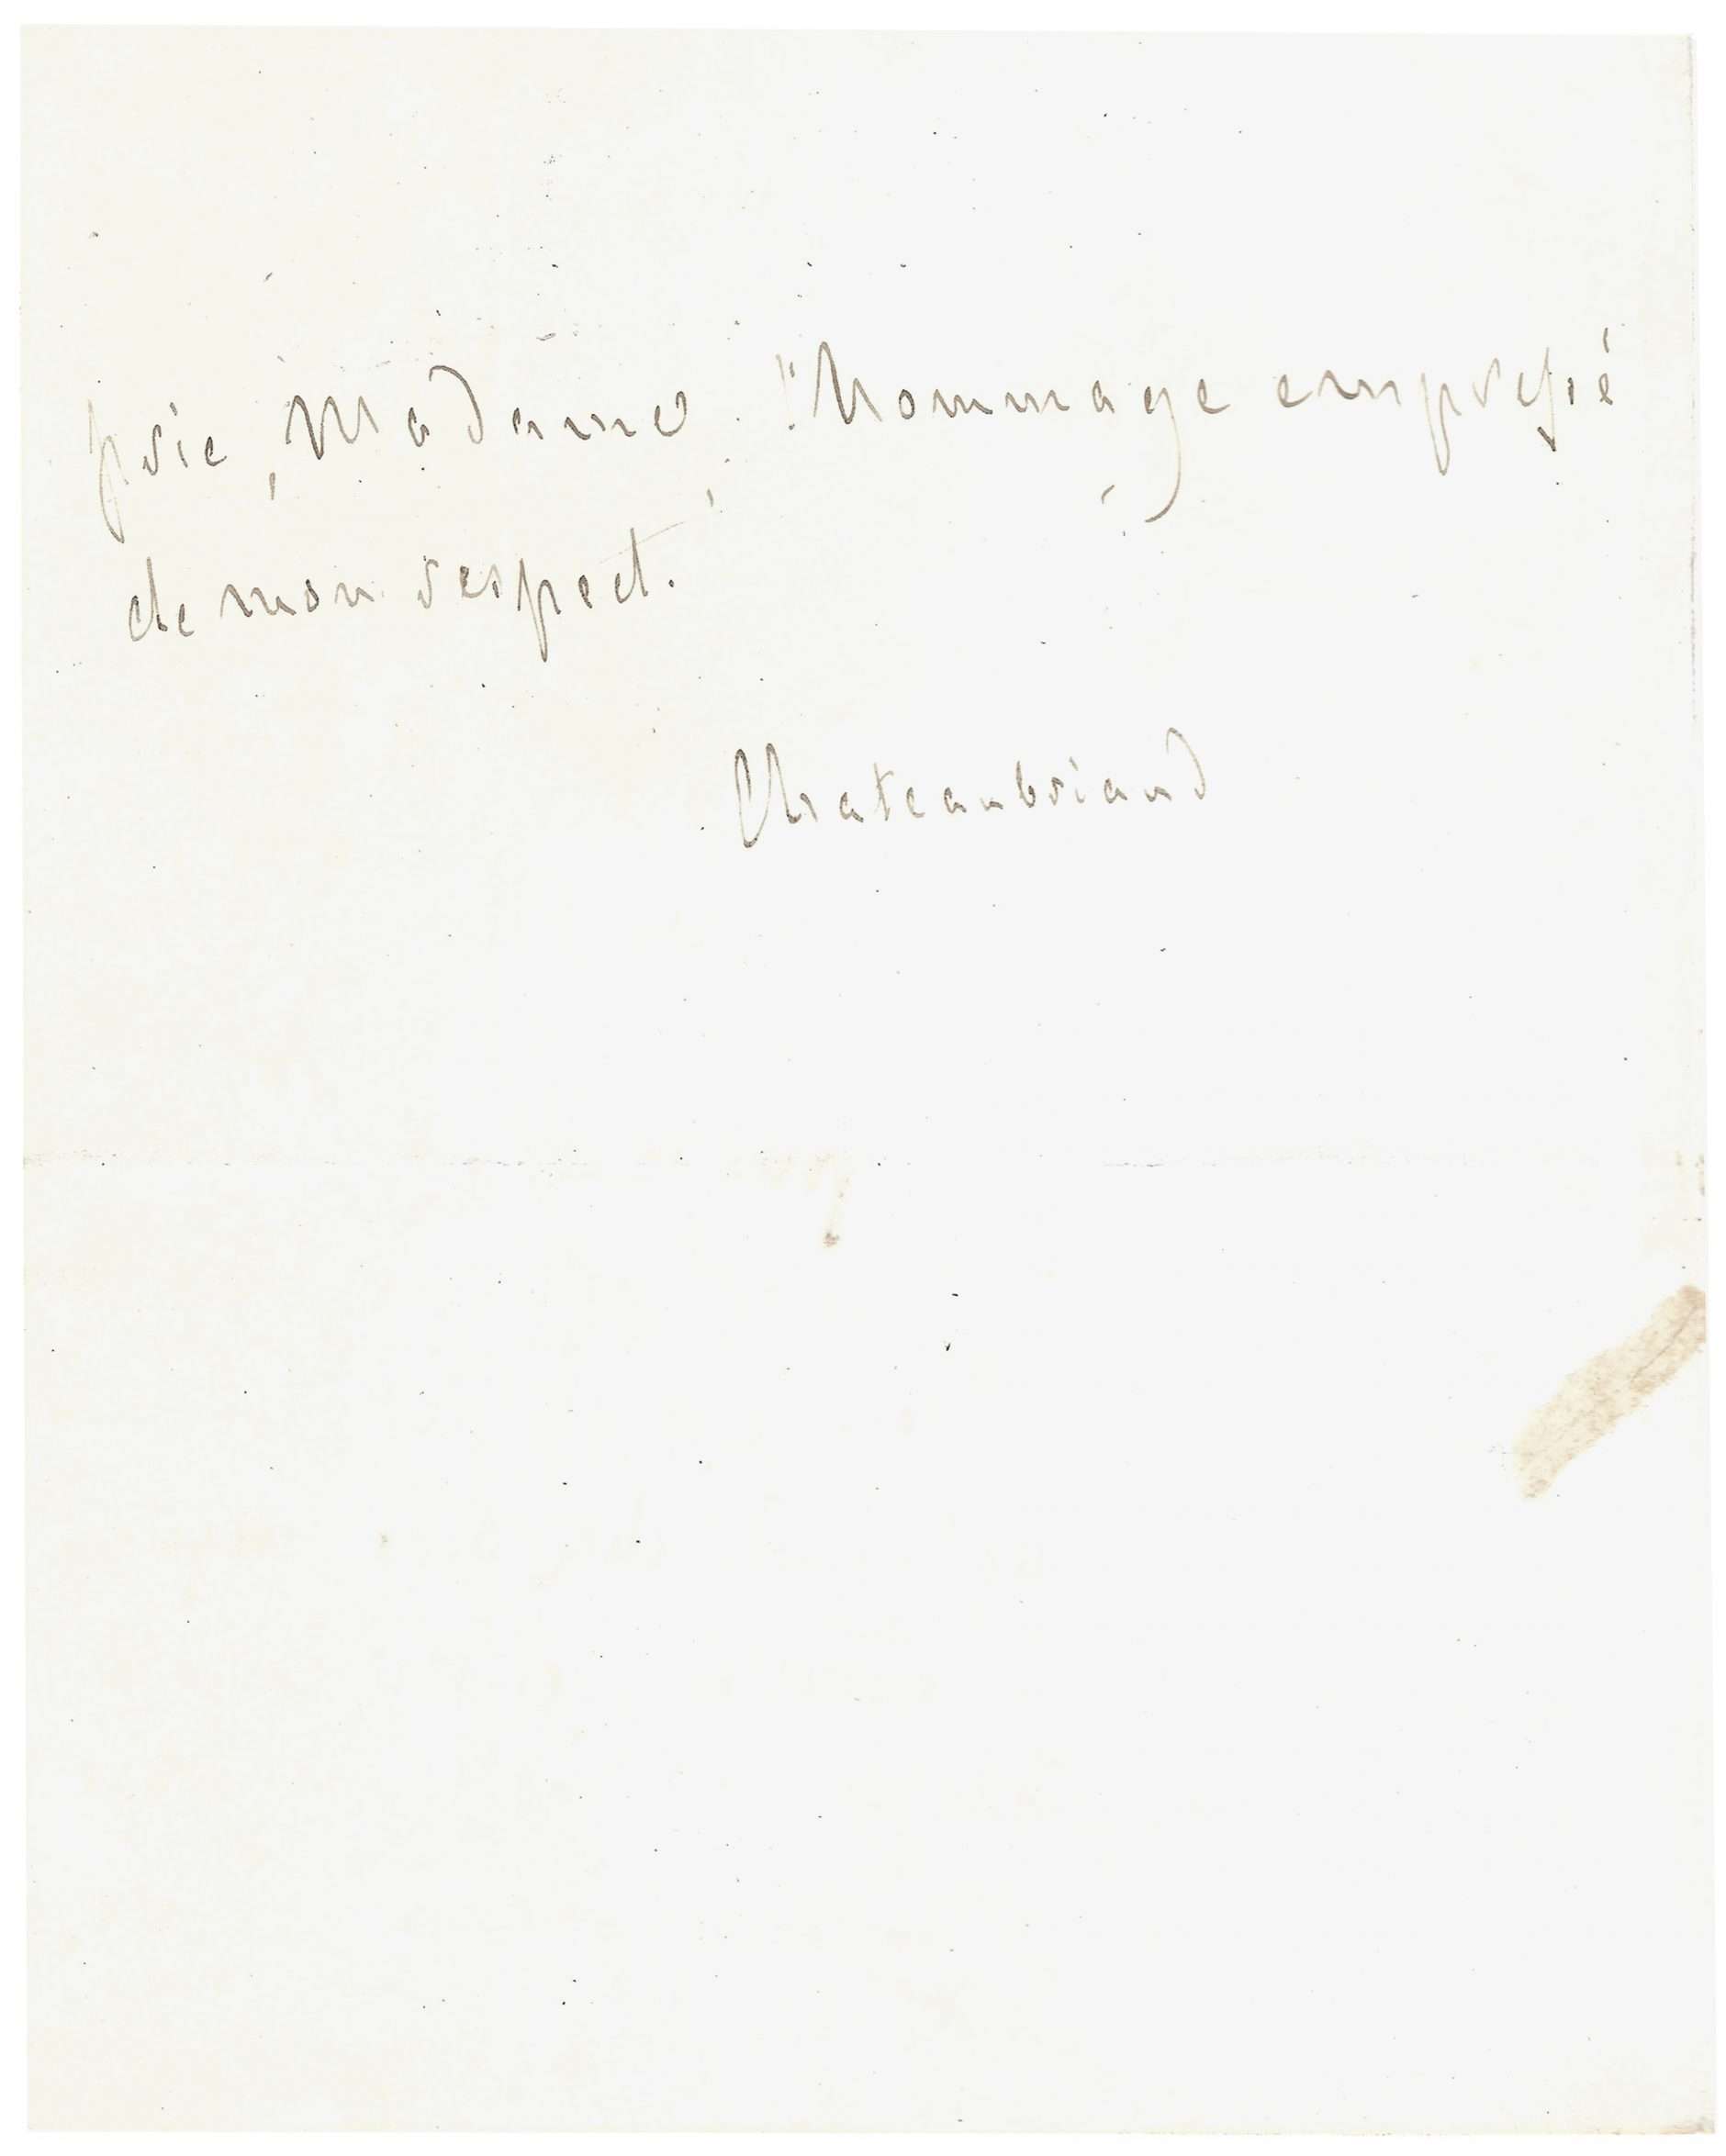 prie, Madame, l'hommage empressé
de mon respect.
Chateaubriand